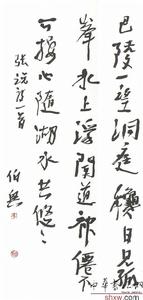 巴陵一望洞庭秋日見孤
峯水上浮聞道神僊不
可接心隨湖水共悠〻
張說詩一首
shxw.com